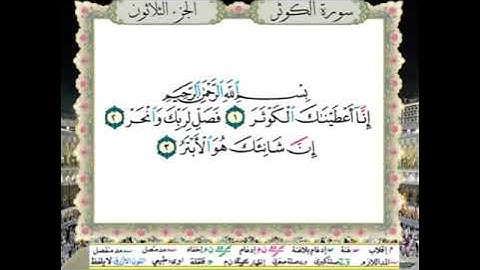 سورة الكوثر
الجزء الثلاثون
بِسْمِ اللَّهِ الرَّحْمَٰنِ الرَّحِيمِ
إِنَّا أَعْطَيْنَاكَ الْكَوْثَرَ ١ فَصَلِّ لِرَبِّكَ وَانْحَرْ ٢
إِنَّ شَانِئَكَ هُوَ الْأَبْتَرُ ٣